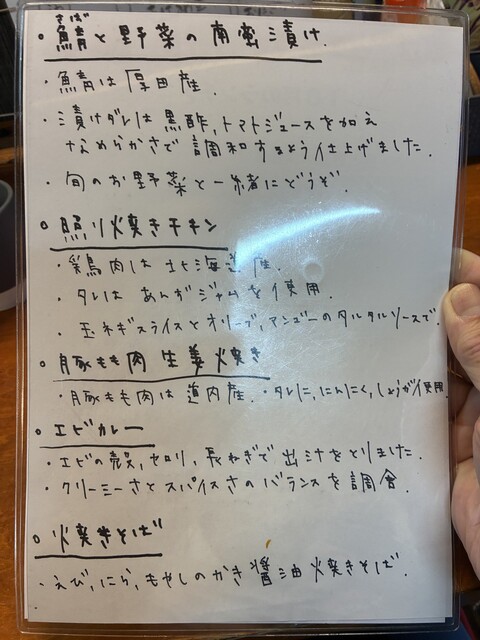 さば
。鯖と野菜の南蛮漬け
・鯖は厚田産.
・漬けダレは黒酢,トマトジュースを加え
なめらかさで調和するよう仕上げました.
・旬のお野菜と一緒にどうぞ.
。照り焼きチキン
・鶏肉は北海道産.
・タレは あんずジャムを使用.
・玉ネギスライスとオリーブ,マンゴーのタルタルソースで.
。豚もも肉 生姜焼き
・豚もも肉は道内産.・タレに,にんにく,しょうが使用.
。エビカレー
・エビの殻,セロリ,長ねぎで出汁をとりました.
・クリーミーさとスパイスさのバランスを調合.
。焼きそば
・えび,にら,もやしのかき醤油焼きそば.